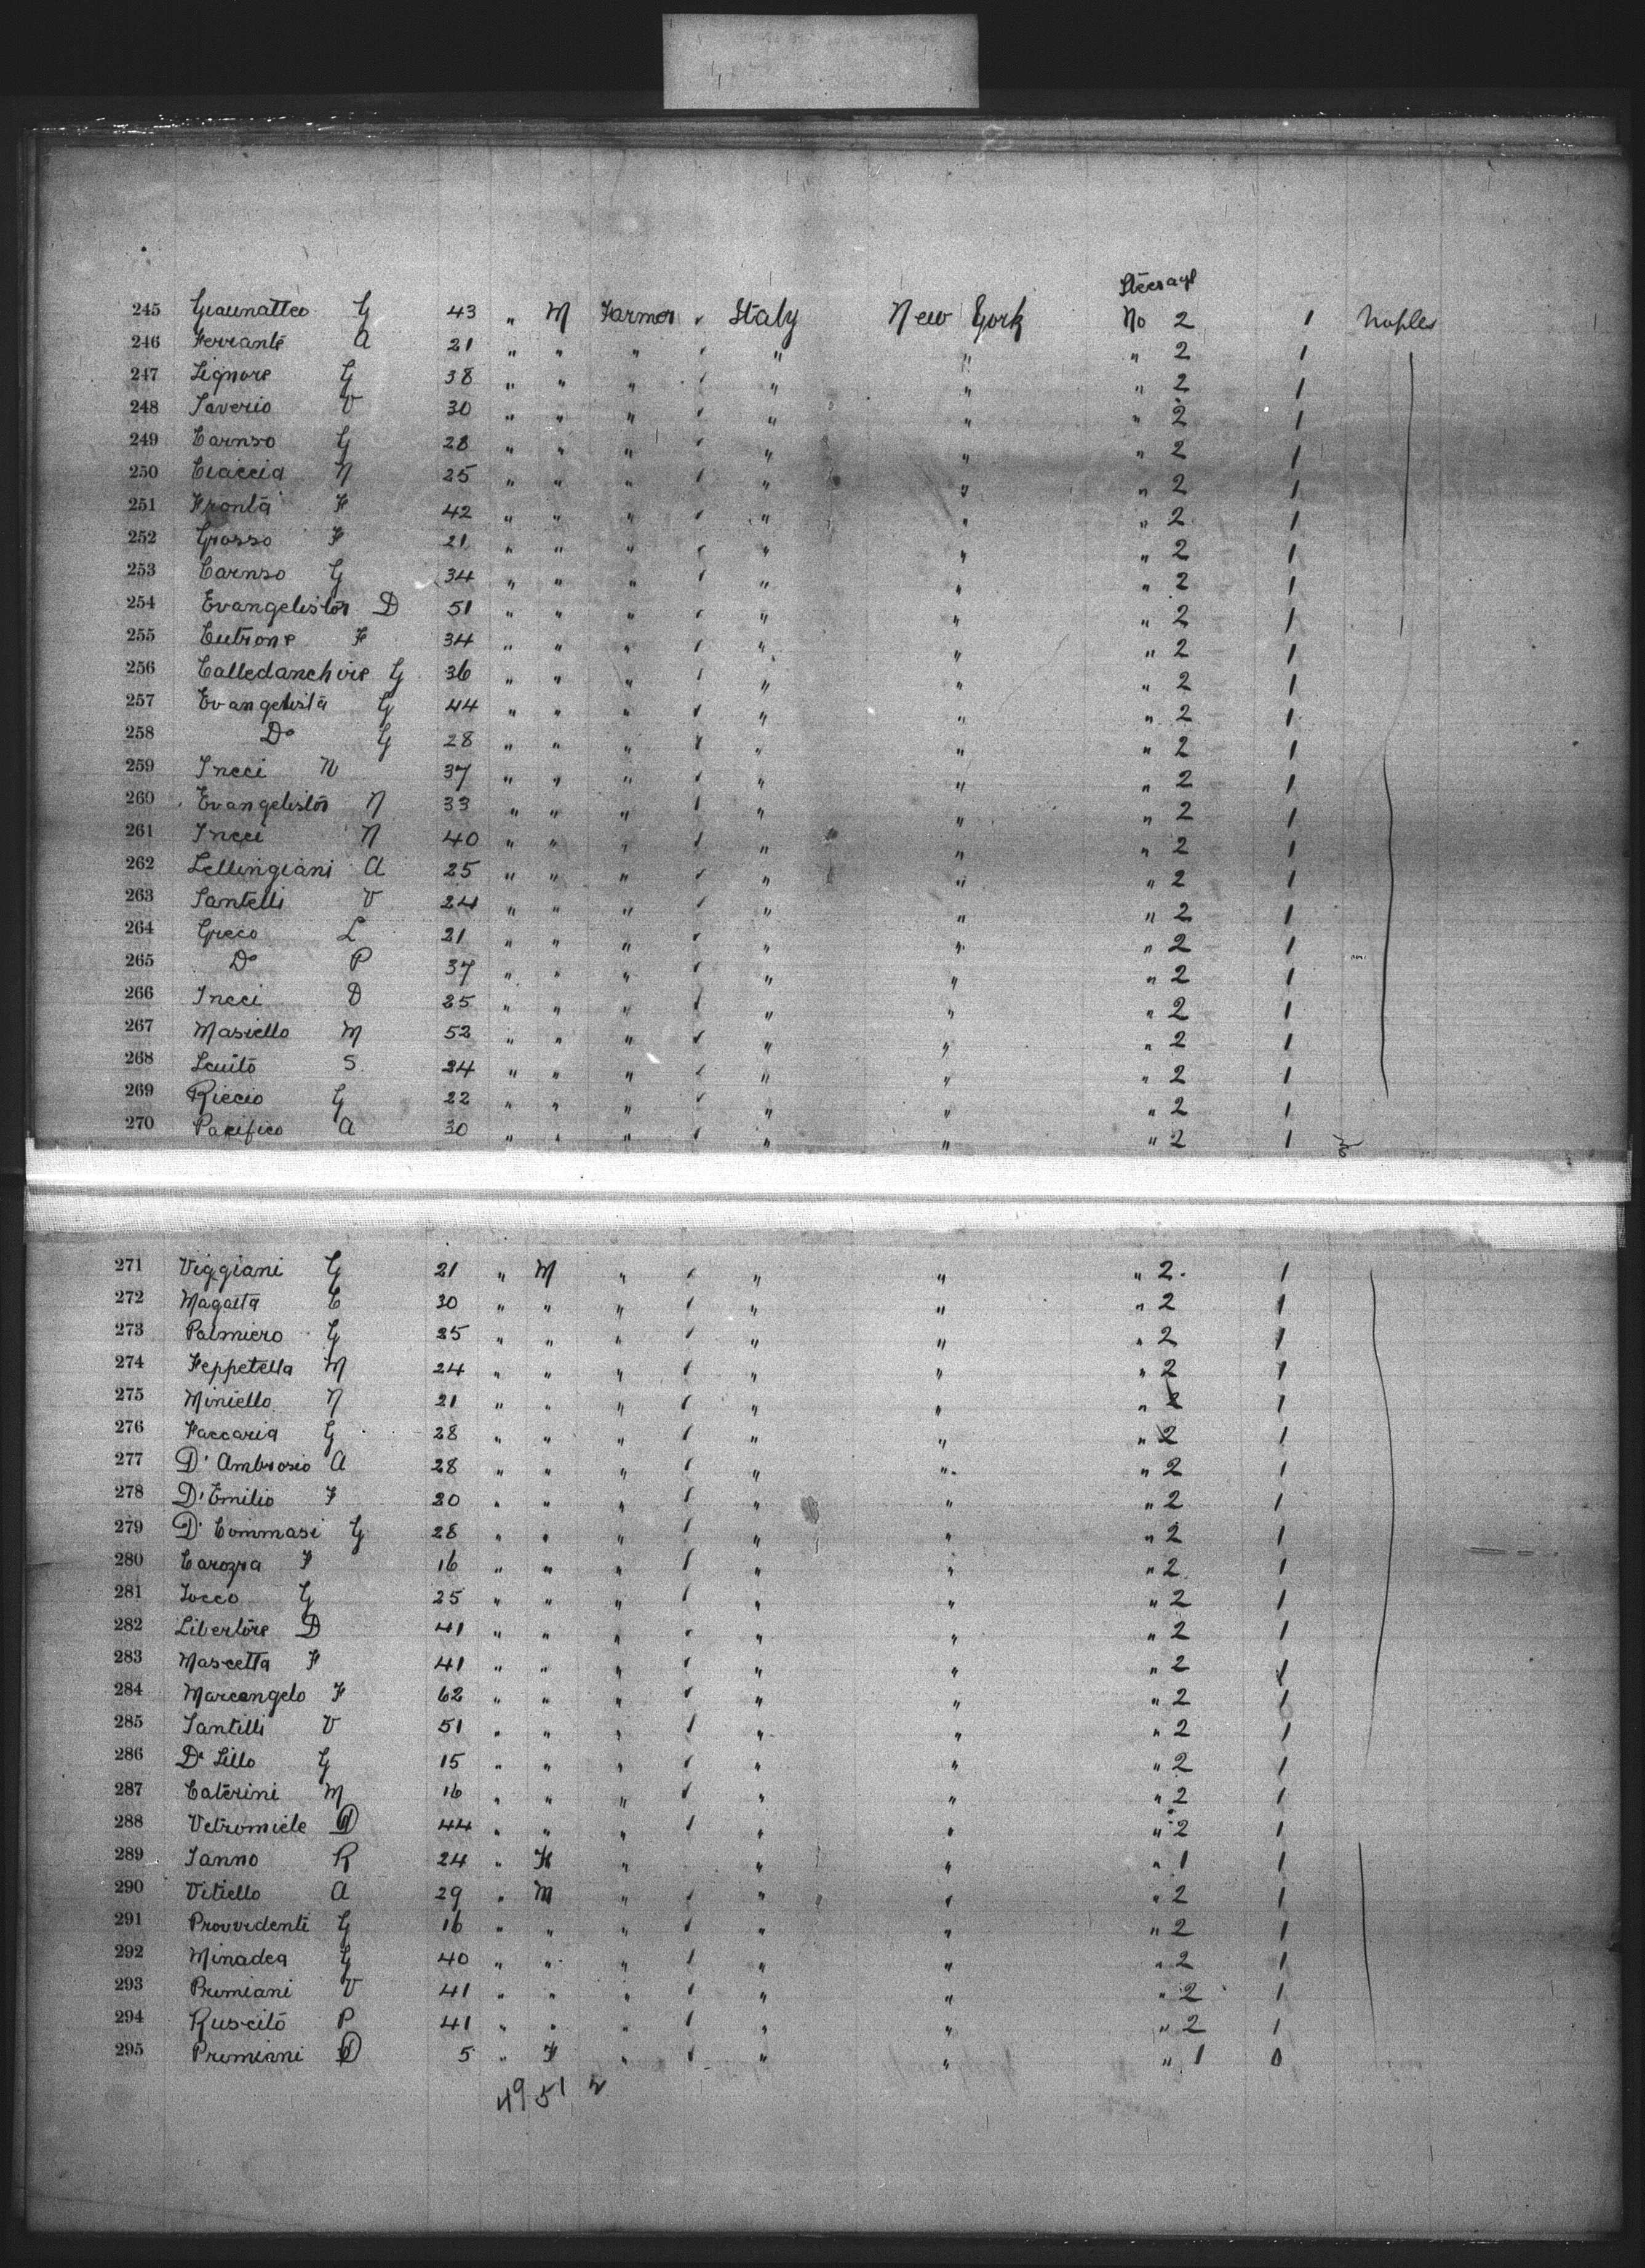 Steerage
245 Giaunatteo G 43 " M Farmer Italy New York No 2 1 Naples
246 Ferrante A 21 " " " " " " 2 1
247 Signore G 38 " " " " " " 2 1
248 Saverio V 30 " " " " " " 2 1
249 Carnso G 28 " " " " " " 2 1
250 Ciaccia N 25 " " " " " " 2 1
251 Fronta F 42 " " " " " " 2 1
252 Grosso F 21 " " " " " " 2 1
253 Carnso G 34 " " " " " " 2 1
254 Evangelistor D 51 " " " " " " 2 1
255 Cutrone F 34 " " " " " " 2 1
256 Calledanchvie G 36 " " " " " " 2 1
257 Evangelista G 44 " " " " " " 2 1
258 Do G 28 " " " " " " 2 1
259 Incci N 37 " " " " " " 2 1
260 Evangelistor N 33 " " " " " " 2 1
261 Incci N 40 " " " " " " 2 1
262 Lellingiani A 25 " " " " " " 2 1
263 Santelli V 24 " " " " " " 2 1
264 Greco L 21 " " " " " " 2 1
265 Do P 37 " " " " " " 2 1
266 Incci D 25 " " " " " " 2 1
267 Masiello M 52 " " " " " " 2 1
268 Scuito S 24 " " " " " " 2 1
269 Riccio G 22 " " " " " " 2 1
270 Pacifico A 30 " " " " " " 2 1
271 Viggiani G 21 " M " " " " 2 1
272 Magatta C 30 " " " " " " 2 1
273 Palmiero G 25 " " " " " " 2 1
274 Feppetella M 24 " " " " " " 2 1
275 Miniello N 21 " " " " " " 2 1
276 Faccaria G 28 " " " " " " 2 1
277 D'Ambrosio A 28 " " " " " " 2 1
278 D'Emilio F 20 " " " " " " 2 1
279 D'Commasi G 28 " " " " " " 2 1
280 Carozza F 16 " " " " " " 2 1
281 Iocco G 25 " " " " " " 2 1
282 Libertore D 41 " " " " " " 2 1
283 Mascetta F 41 " " " " " " 2 1
284 Marcangelo F 62 " " " " " " 2 1
285 Santilli V 51 " " " " " " 2 1
286 Di Lillo G 15 " " " " " " 2 1
287 Caterini M 16 " " " " " " 2 1
288 Vetromiele D 44 " " " " " " 2 1
289 Ianno R 24 " F " " " " 1 1
290 Vitiello A 29 " M " " " " 2 1
291 Provvidenti G 16 " " " " " " 2 1
292 Minadea G 40 " " " " " " 2 1
293 Premiani V 41 " " " " " " 2 1
294 Ruscito P 41 " " " " " " 2 1
295 Premiani D 5 " F " " " " 1 0
49 51 2